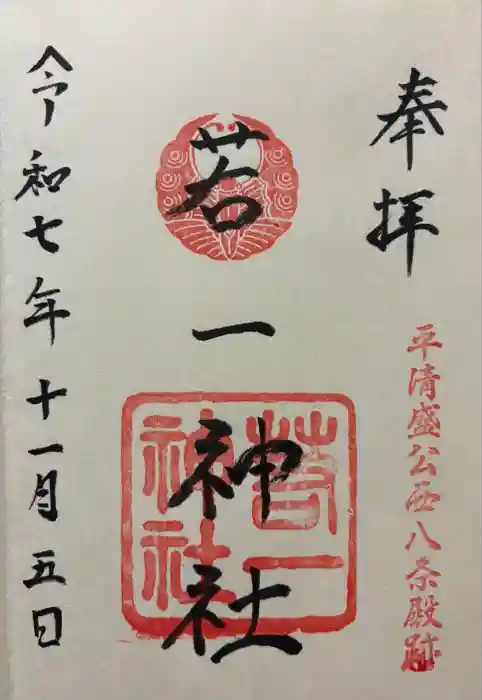 奉拝
平清盛公西八条殿跡
若一神社
若一
神社
令和七年十一月五日